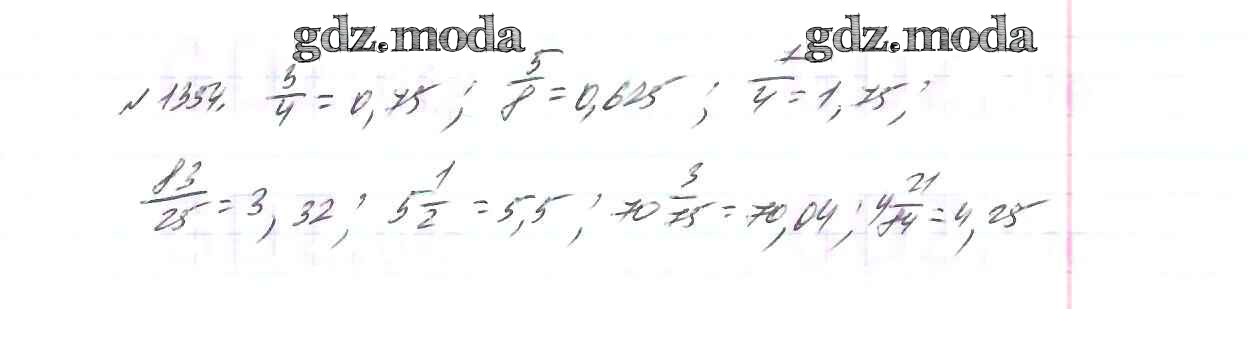 gdz.moda gdz.moda
№1354. 3/4 = 0,75 ; 5/8 = 0,625 ; 7/4 = 1,75 ;
83/25 = 3,32 ; 5 1/2 = 5,5 ; 70 3/75 = 70,04 ; 4 21/74 = 4,25